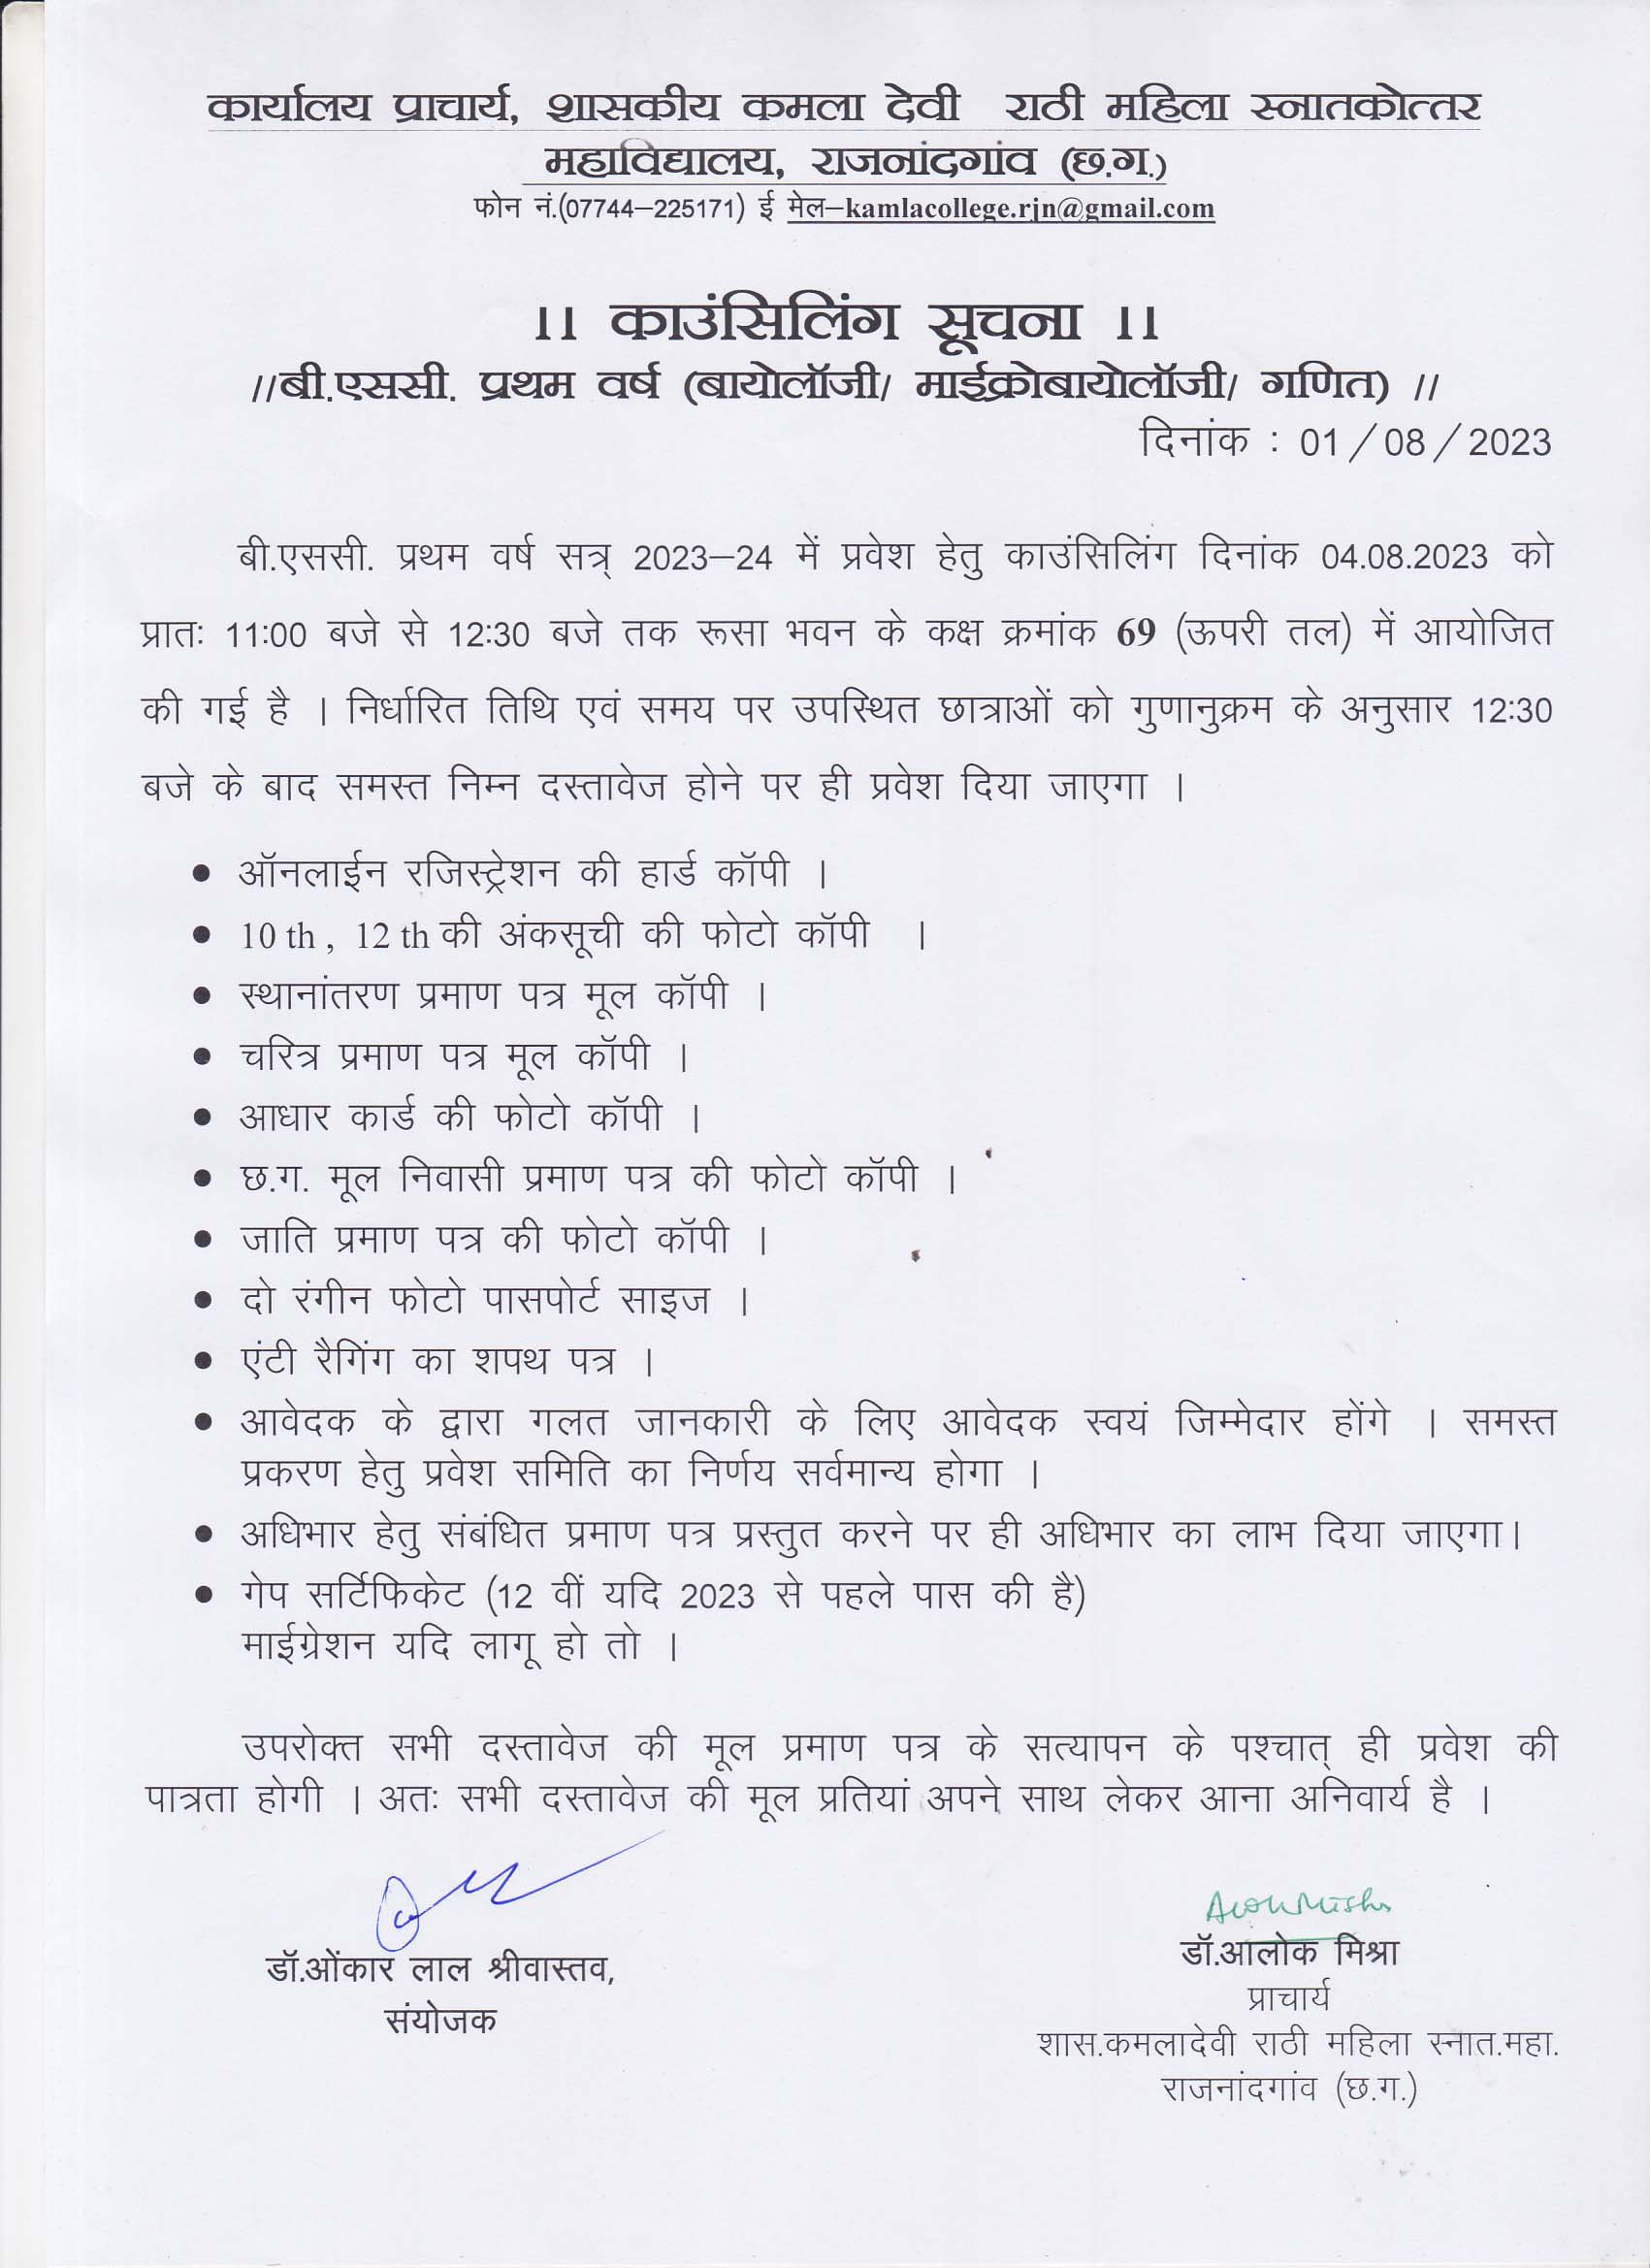 कार्यालय प्राचार्य, शासकीय कमला देवी राठी महिला स्नातकोत्तर
महाविद्यालय, राजनांदगांव (छ.ग.)
फोन नं.(07744–225171) ई मेल–kamlacollege.rjn@gmail.com
।। काउंसिलिंग सूचना ।।
//बी.एससी. प्रथम वर्ष (बायोलॉजी/ माईक्रोबायोलॉजी/ गणित) //
दिनांक : 01/08/2023
बी.एससी. प्रथम वर्ष सत्र् 2023–24 में प्रवेश हेतु काउंसिलिंग दिनांक 04.08.2023 को
प्रातः 11:00 बजे से 12:30 बजे तक रूसा भवन के कक्ष क्रमांक 69 (ऊपरी तल) में आयोजित
की गई है । निर्धारित तिथि एवं समय पर उपस्थित छात्राओं को गुणानुक्रम के अनुसार 12:30
बजे के बाद समस्त निम्न दस्तावेज होने पर ही प्रवेश दिया जाएगा ।
• ऑनलाईन रजिस्ट्रेशन की हार्ड कॉपी ।
• 10 th , 12 th की अंकसूची की फोटो कॉपी ।
• स्थानांतरण प्रमाण पत्र मूल कॉपी ।
• चरित्र प्रमाण पत्र मूल कॉपी ।
• आधार कार्ड की फोटो कॉपी ।
• छ.ग. मूल निवासी प्रमाण पत्र की फोटो कॉपी ।
• जाति प्रमाण पत्र की फोटो कॉपी ।
• दो रंगीन फोटो पासपोर्ट साइज ।
• एंटी रैगिंग का शपथ पत्र ।
• आवेदक के द्वारा गलत जानकारी के लिए आवेदक स्वयं जिम्मेदार होंगे । समस्त
प्रकरण हेतु प्रवेश समिति का निर्णय सर्वमान्य होगा ।
• अधिभार हेतु संबंधित प्रमाण पत्र प्रस्तुत करने पर ही अधिभार का लाभ दिया जाएगा।
• गेप सर्टिफिकेट (12 वीं यदि 2023 से पहले पास की है)
माईग्रेशन यदि लागू हो तो ।
उपरोक्त सभी दस्तावेज की मूल प्रमाण पत्र के सत्यापन के पश्चात् ही प्रवेश की
पात्रता होगी । अतः सभी दस्तावेज की मूल प्रतियां अपने साथ लेकर आना अनिवार्य है ।
डॉ.ओंकार लाल श्रीवास्तव,
संयोजक
डॉ.आलोक मिश्रा
प्राचार्य
शास.कमलादेवी राठी महिला स्नात.महा.
राजनांदगांव (छ.ग.)